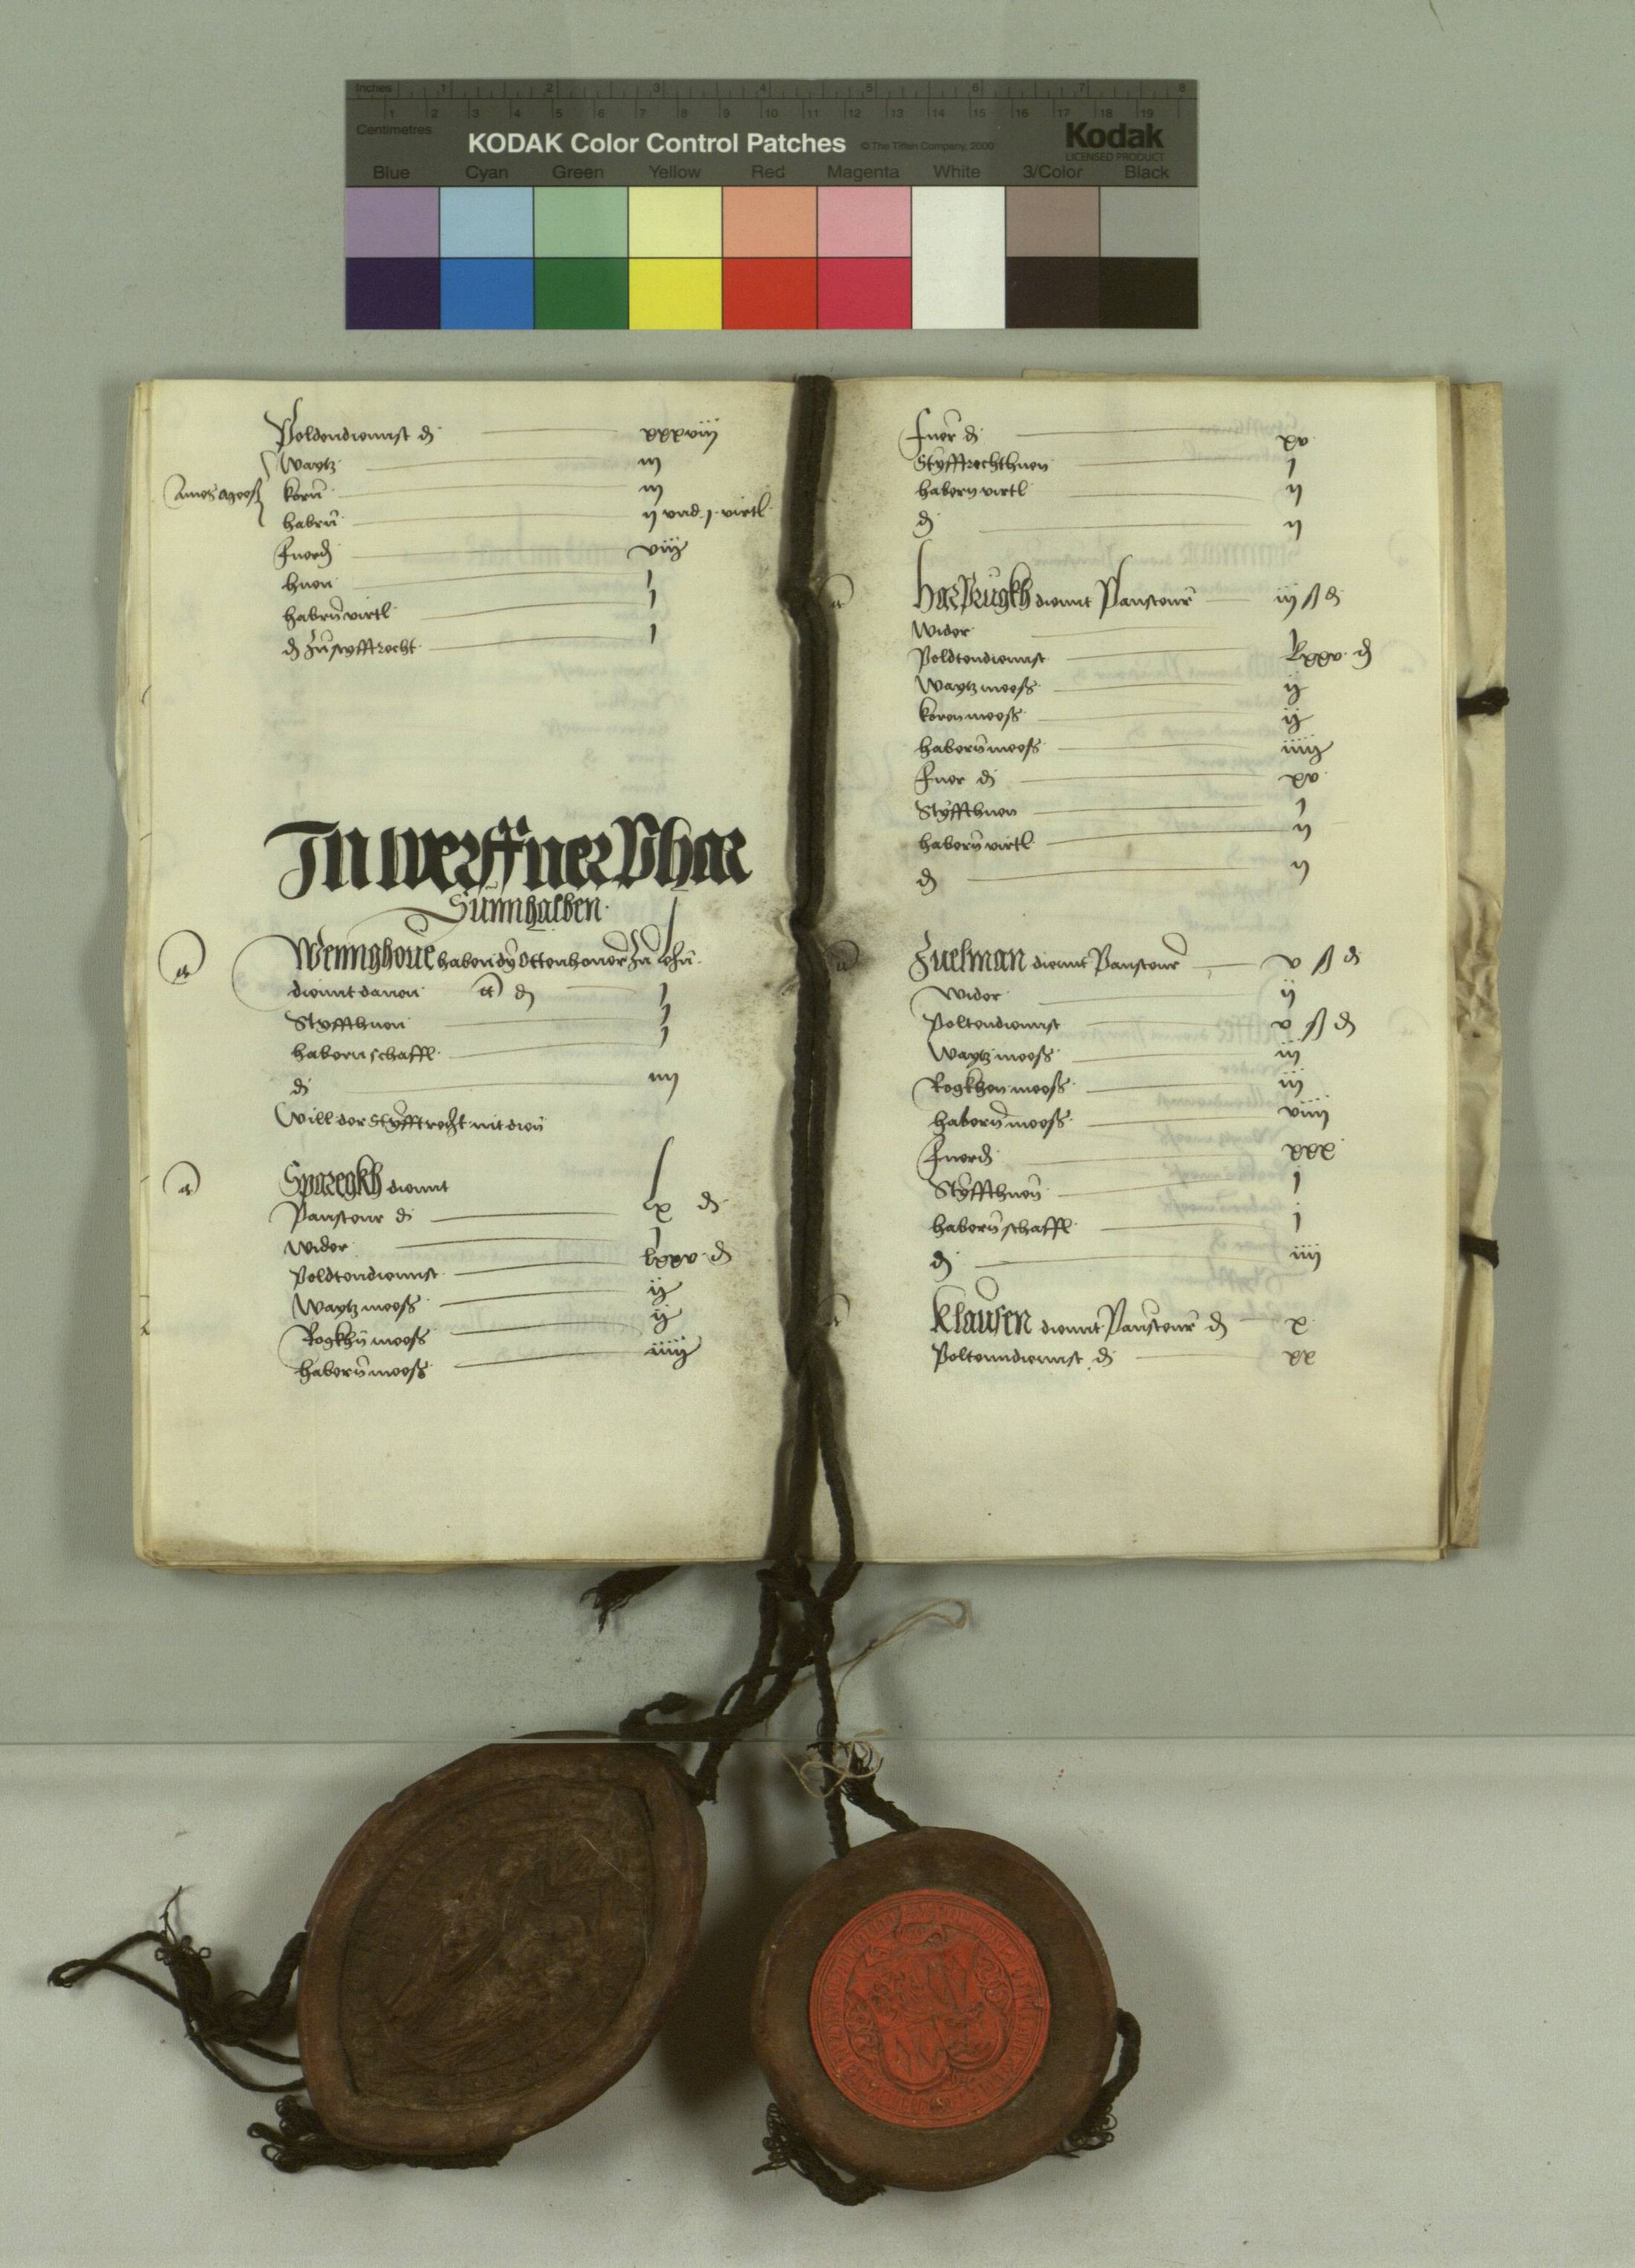 Inches 1 2 3 4 5 6 7 8
1 2 3 4 5 6 7 8 9 10 11 12 13 14 15 16 17 18 19
Centimetres
KODAK Color Control Patches © The Tiffen Company, 2000 Kodak
LICENSED PRODUCT
Blue Cyan Green Yellow Red Magenta White 3/Color Black
Poldendiennst d xxxviij
Waytz iij
korn iij
habrn ij vnd j virtl
Fuerd viij
huen j
habrn virtl j
d zu styfftrecht j
In werffner Phar
Sunnhalben
Wenighoue haben dy Ottenhouer zu lehn
diennt dauon d j
Styffthuen j
habern schaffl j
d iiij
Will der Styfftrecht nit dien
Sparegkh diennt
Pansteur d lx d
Wider j
Poldtendiennst lxxv d
Waytz meess ij
Rogkhn meess ij
habern meess iiij
Fuer d xv
Styfftrechthuen j
habern virtl ij
d ij
HarPrugkh diennt Pansteur iij ß d
Wider j
Poldtendiennst lxxv d
Waytz meess ij
koren meess ij
habern meess iiij
Fuer d xv
Styffthuen j
habern virtl ij
d ij
Zuelman diennt Pansteur v ß d
Wider ij
Poltendiennst v ß d
Waytz meess iij
Rogkhen meess iij
habern meess viiij
Fuerd xxx
Styffthuen j
habern schaffl j
d iiij
Klausen diennt Pansteur d x
Poltenndiennst d xx